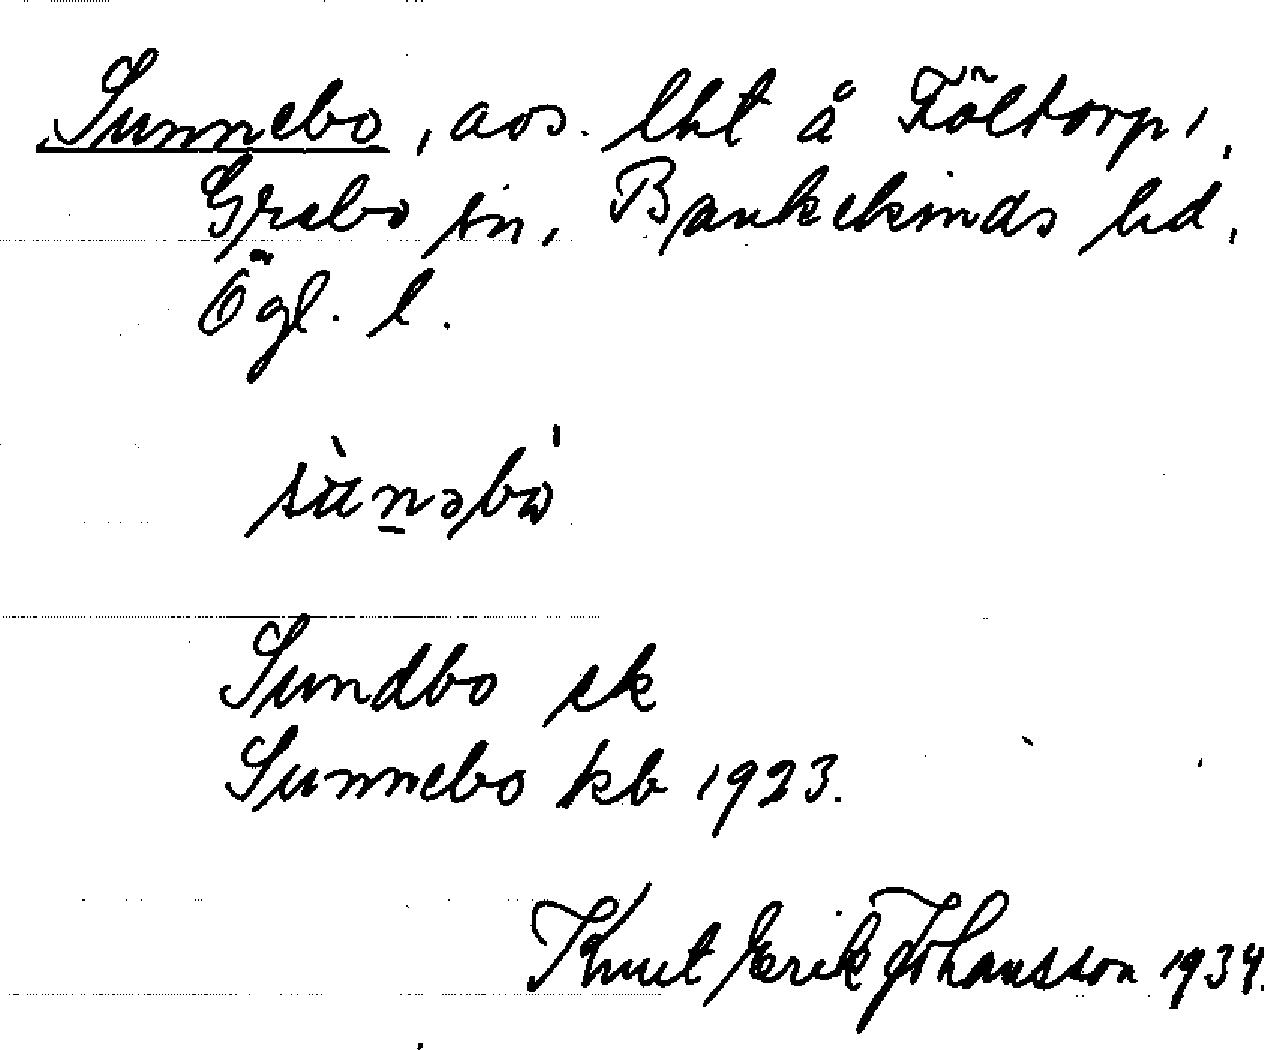 Sunnebo, aos. lht å Föltorp,
Grebo sn, Bankekinds hd,
Ögl. l.
sùnəbò
Sundbo ek
Sunnebo kb 1923.
Knut Erik Johansson 1934.